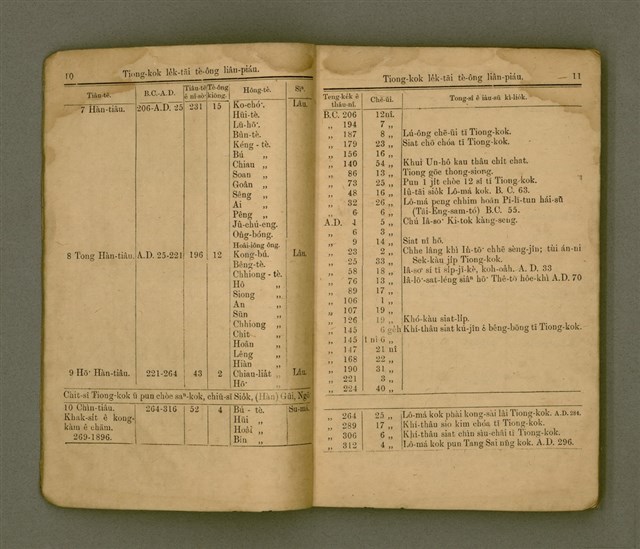 10 Tiong-kok le̍k-tāi tè-ông liân-piáu.
Tiâu-tè. B.C.-A.D. Tiân-tè ê nî-sò͘ Tè-ông kiông. Hông-tè. Sìⁿ.
7 Hàn-tiâu. 206-A.D. 25 231 15 Ko-chó͘. Lâu.
Hūi-tè.
Lū-hō͘.
Bûn-tè.
Kéng-tè.
Bú „
Chiau „
Soan „
Goân „
Sêng „
Ai „
Pêng „
Jû-chú-eng.
On̂g-bóng.
Hoâi-iông ông.
8 Tong Hàn-tiâu. A.D. 25-221 196 12 Kong-bú. Lâu.
Bêng-tè.
Chhiong-tè.
Hô „
Siong „
An „
Sūn „
Chhiong „
Chit „
Hoân „
Lêng „
Hiàn „
9 Hō͘ Hàn-tiâu. 221-264 43 2 Chiau-lia̍t „ Lâu.
Hō͘ „
Chit-sî Tiong-kok ū pun chòe saⁿ-kok, chiū-sī Sio̍k, (Hàn) Gūi, Ngô͘
10 Chìn-tiâu. 264-316 52 4 Bú-tè. Su-má.
Khak-si̍t ê kong- Hūi „
kàm ê chām. Hoâi „
269-1896. Bín „
Tiong-kok le̍k-tāi tè-ông liân-piáu. 11
Teng-ke̍k ê thâu-nî. Chē-ūi. Tong-sî ê iàu-sū kì-lio̍k.
B.C. 206 12nî.
„ 194 7 „
„ 187 8 „ Lú-ông chē-ūi tī Tiong-kok.
„ 179 23 „ Siat chō chóa tī Tiong-kok.
„ 156 16 „
„ 140 54 „ Khui Un-hô kau thâu chi̍t chat.
„ 86 13 „ Tiong gōe thong-siong.
„ 73 25 „ Pun 1 ji̍t chòe 12 sî tī Tiong-kok.
„ 48 16 „ Iû-tāi sio̍k Lô-má kok. B. C. 63.
„ 32 26 „ Lô-má peng chhim hoān Pi-li-tun hái-sū
„ 6 6 „ (Tāi-Eng-sam-tó) B.C. 55.
A.D. 4 5 „ Chú Iâ-so͘ Ki-tok kàng-seng.
„ 6 3 „
„ 9 14 „ Siat nî hō.
„ 23 2 „ Chhe lâng khì Iù-tō͘ chhē sèng-jîn; tùi án-ni
„ 25 33 „ Sek-kàu ji̍p Tiong-kok.
„ 58 18 „ Iâ-so͘ sí tī si̍p-jī-kè, koh-oa̍h. A. D. 33
„ 76 13 „ Iâ-lō͘-sat-léng siâⁿ hō͘ Thê-tō hóe-khì A.D. 70
„ 89 17 „
„ 106 1 „
„ 107 19 „
„ 126 19 „ Khó-kàu siat-li̍p.
„ 145 6 ge̍h Khí-thâu siat kú-jîn ê bêng-bōng tī Tiong-kok.
„ 145 1 nî 6 „
„ 147 21 nî
„ 168 22 „
„ 190 31 „
„ 221 3 „
„ 224 40 „
„ 264 25 „ Lô-má kok phài kong-sài lâi Tiong-kok. A.D. 284.
„ 289 17 „ Khí-thâu sio kim chóa tī Tiong-kok.
„ 306 6 „ Khí-thâu siat chìn siu-châi tī Tiong-kok.
„ 312 4 „ Lô-má kok pun Tang Sai nn̄g kok. A.D. 296.